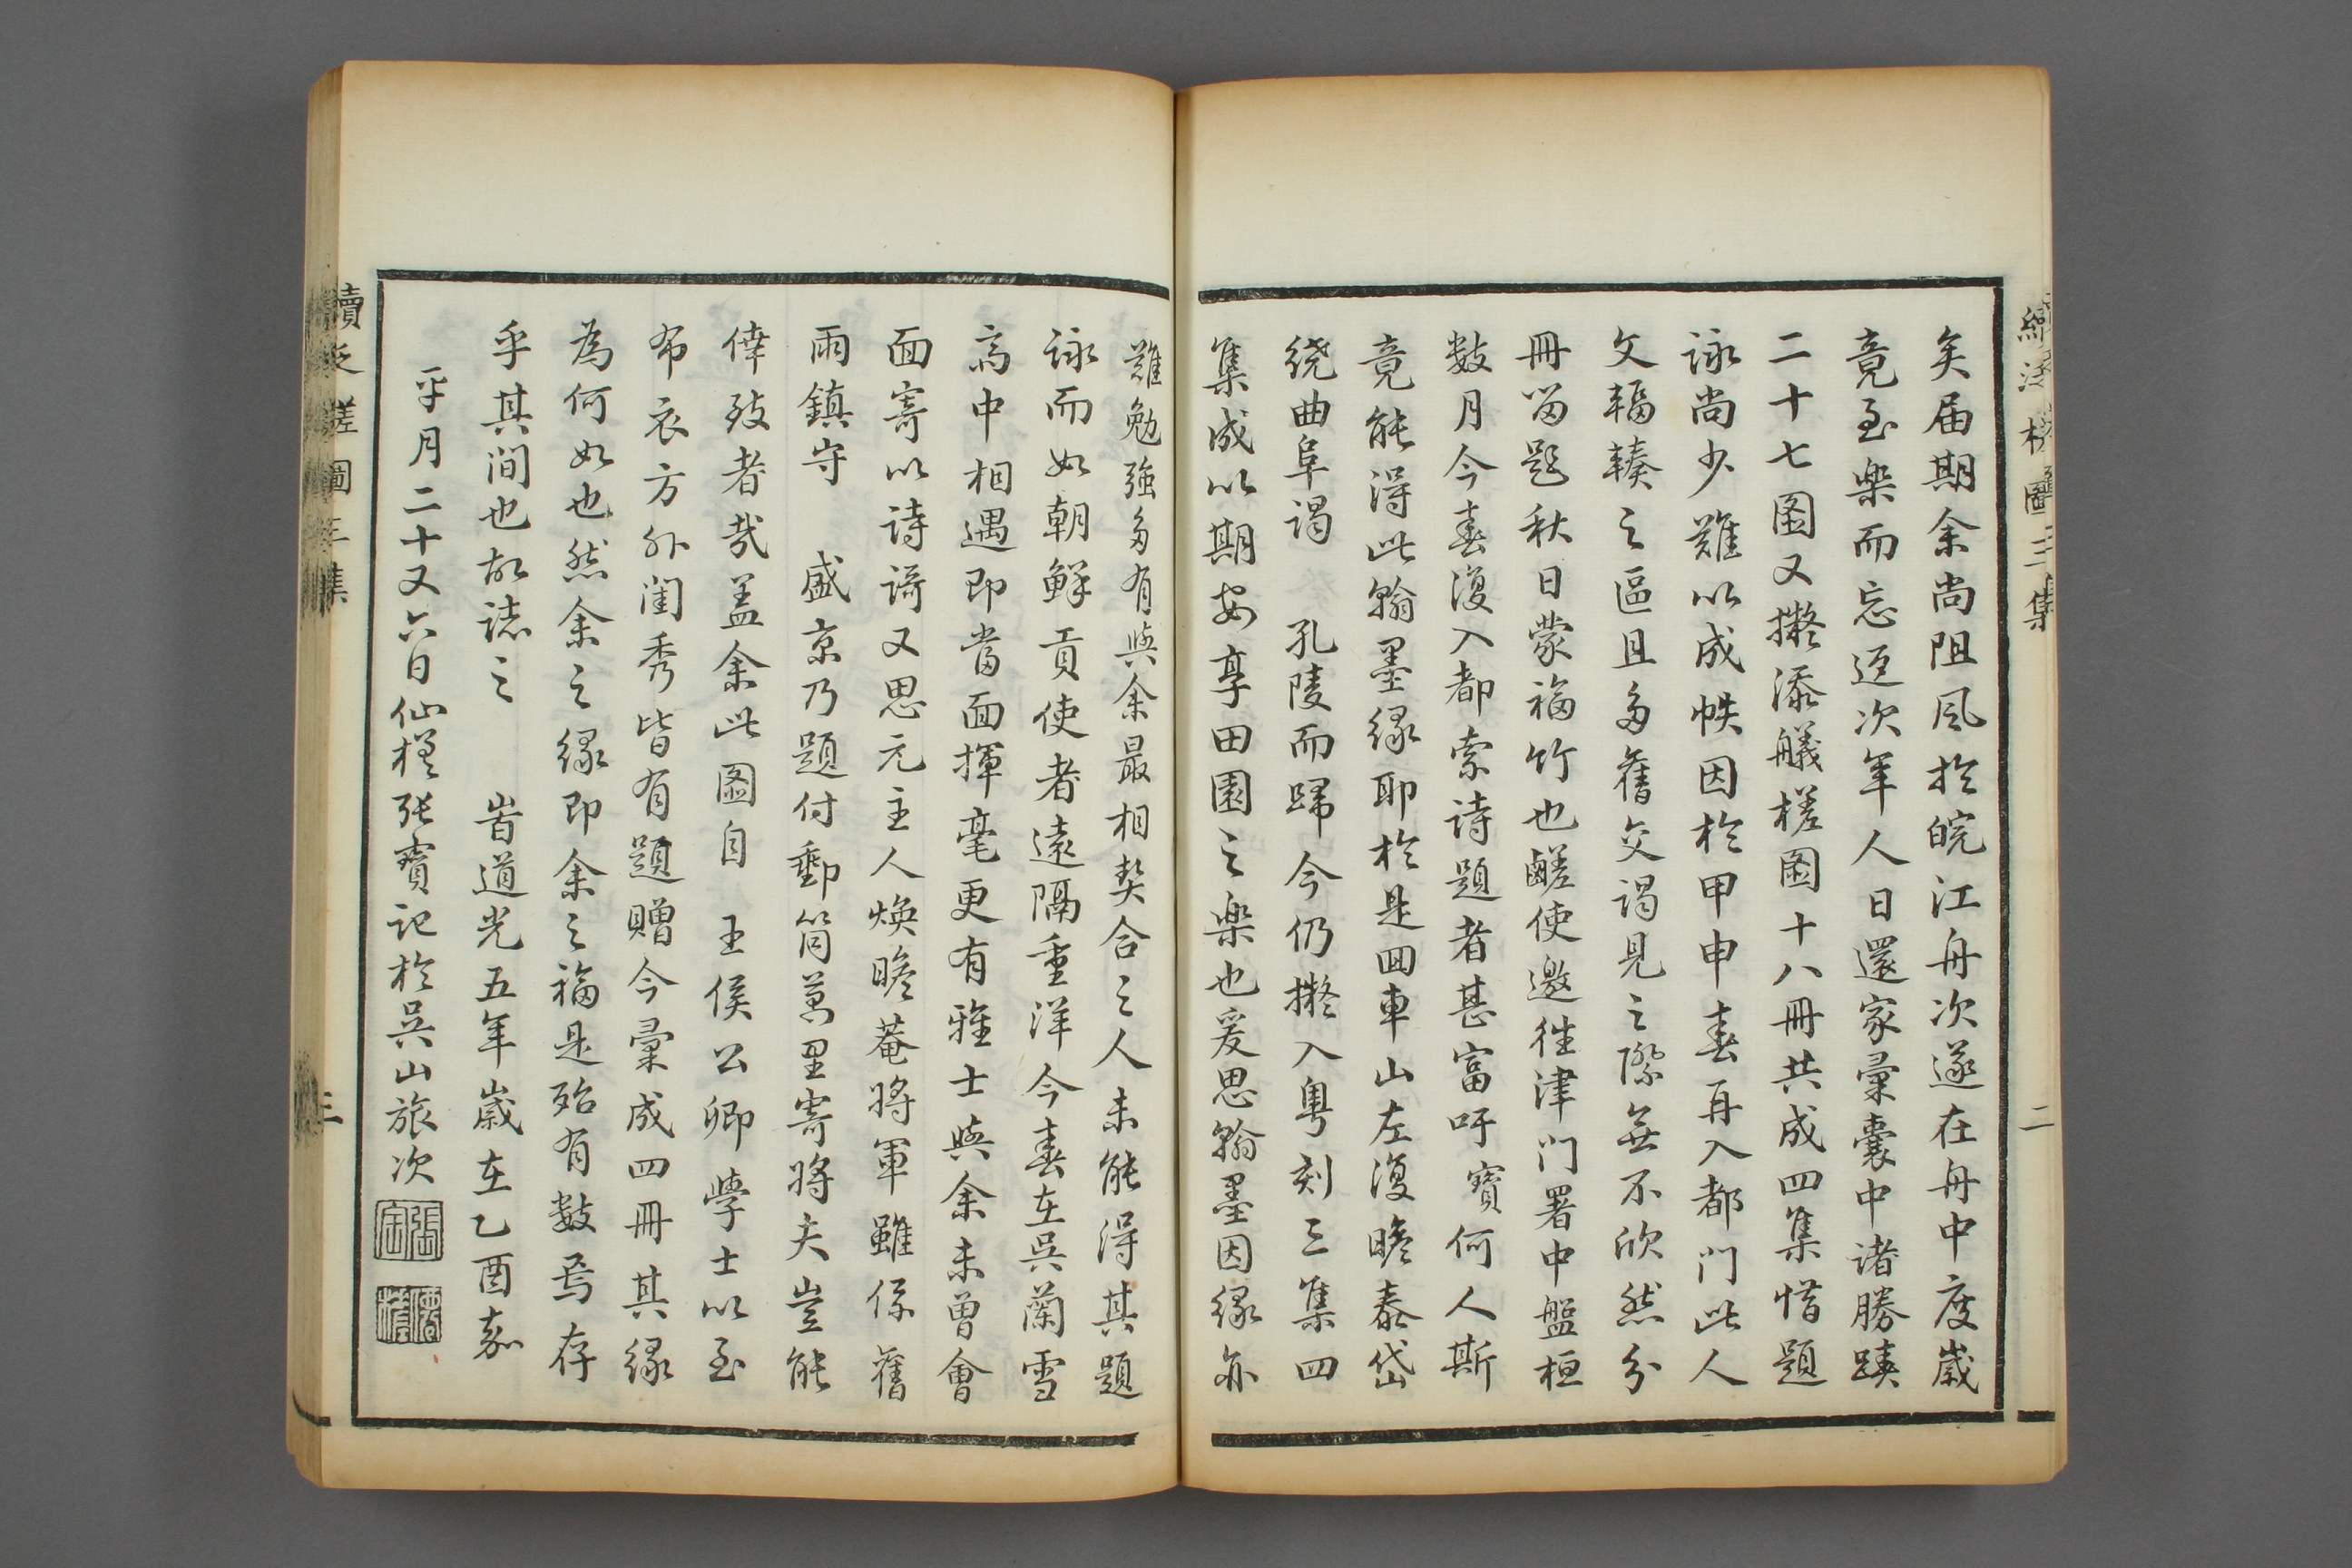 續泛槎圖三集
二
矣届期余尚阻風於皖江舟次遂在舟中度歲
竟至樂而忘返次年人日還家彙囊中諸勝蹟
二十七圖又擬添艤槎圖十八冊共成四集惜題
詠尚少難以成帙因於甲申春再入都門此人
文輻輳之區且多舊交謁見之際無不欣然分
冊留題秋日蒙福竹也鹺使邀往津門署中盤桓
數月今春復入都索诗題者甚富吁寶何人斯
竟能得此翰墨緣耶於是回車山左復瞻泰岱
繞曲阜謁 孔陵而歸今仍擬入粵刻三集四
集成以期安享田園之樂也爰思翰墨因緣亦
難勉強多有與余最相契合之人未能得其題
詠而如朝鮮貢使者遠隔重洋今春在吳蘭雪
高中相遇即當面揮毫更有雅士與余未曾會
面寄以诗謌又思元主人煥瞻菴將軍雖係舊
雨鎮守 盛京乃題付郵筒萬里寄將夫豈能
倖致者哉盖余此圖自 王侯公卿學士以至
布衣方外閨秀皆有題贈今彙成四冊其緣
為何如也然余之緣即余之福是殆有數焉存
乎其間也故誌之 旹道光五年歲在乙酉嘉
平月二十又六日仙槎张寶記於吳山旅次
張寶
僊槎
續泛槎圖三集
三